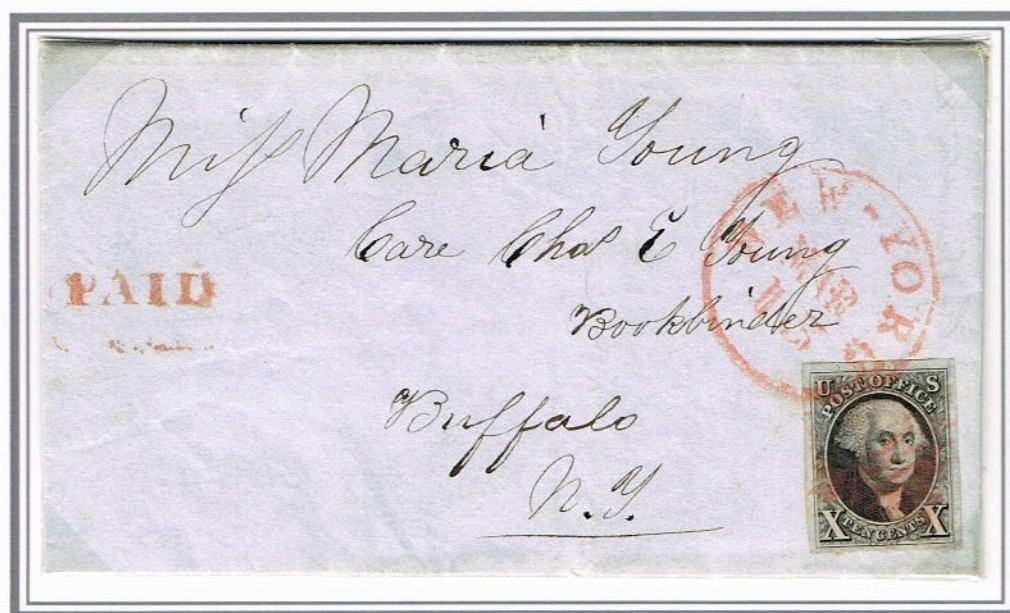 Miſs Maria Young
Care Chas E Young
Bookbinder
Buffalo
N.Y.
PAID
NEW-YORK
MAR
U S
POST OFFICE
X TEN CENTS X